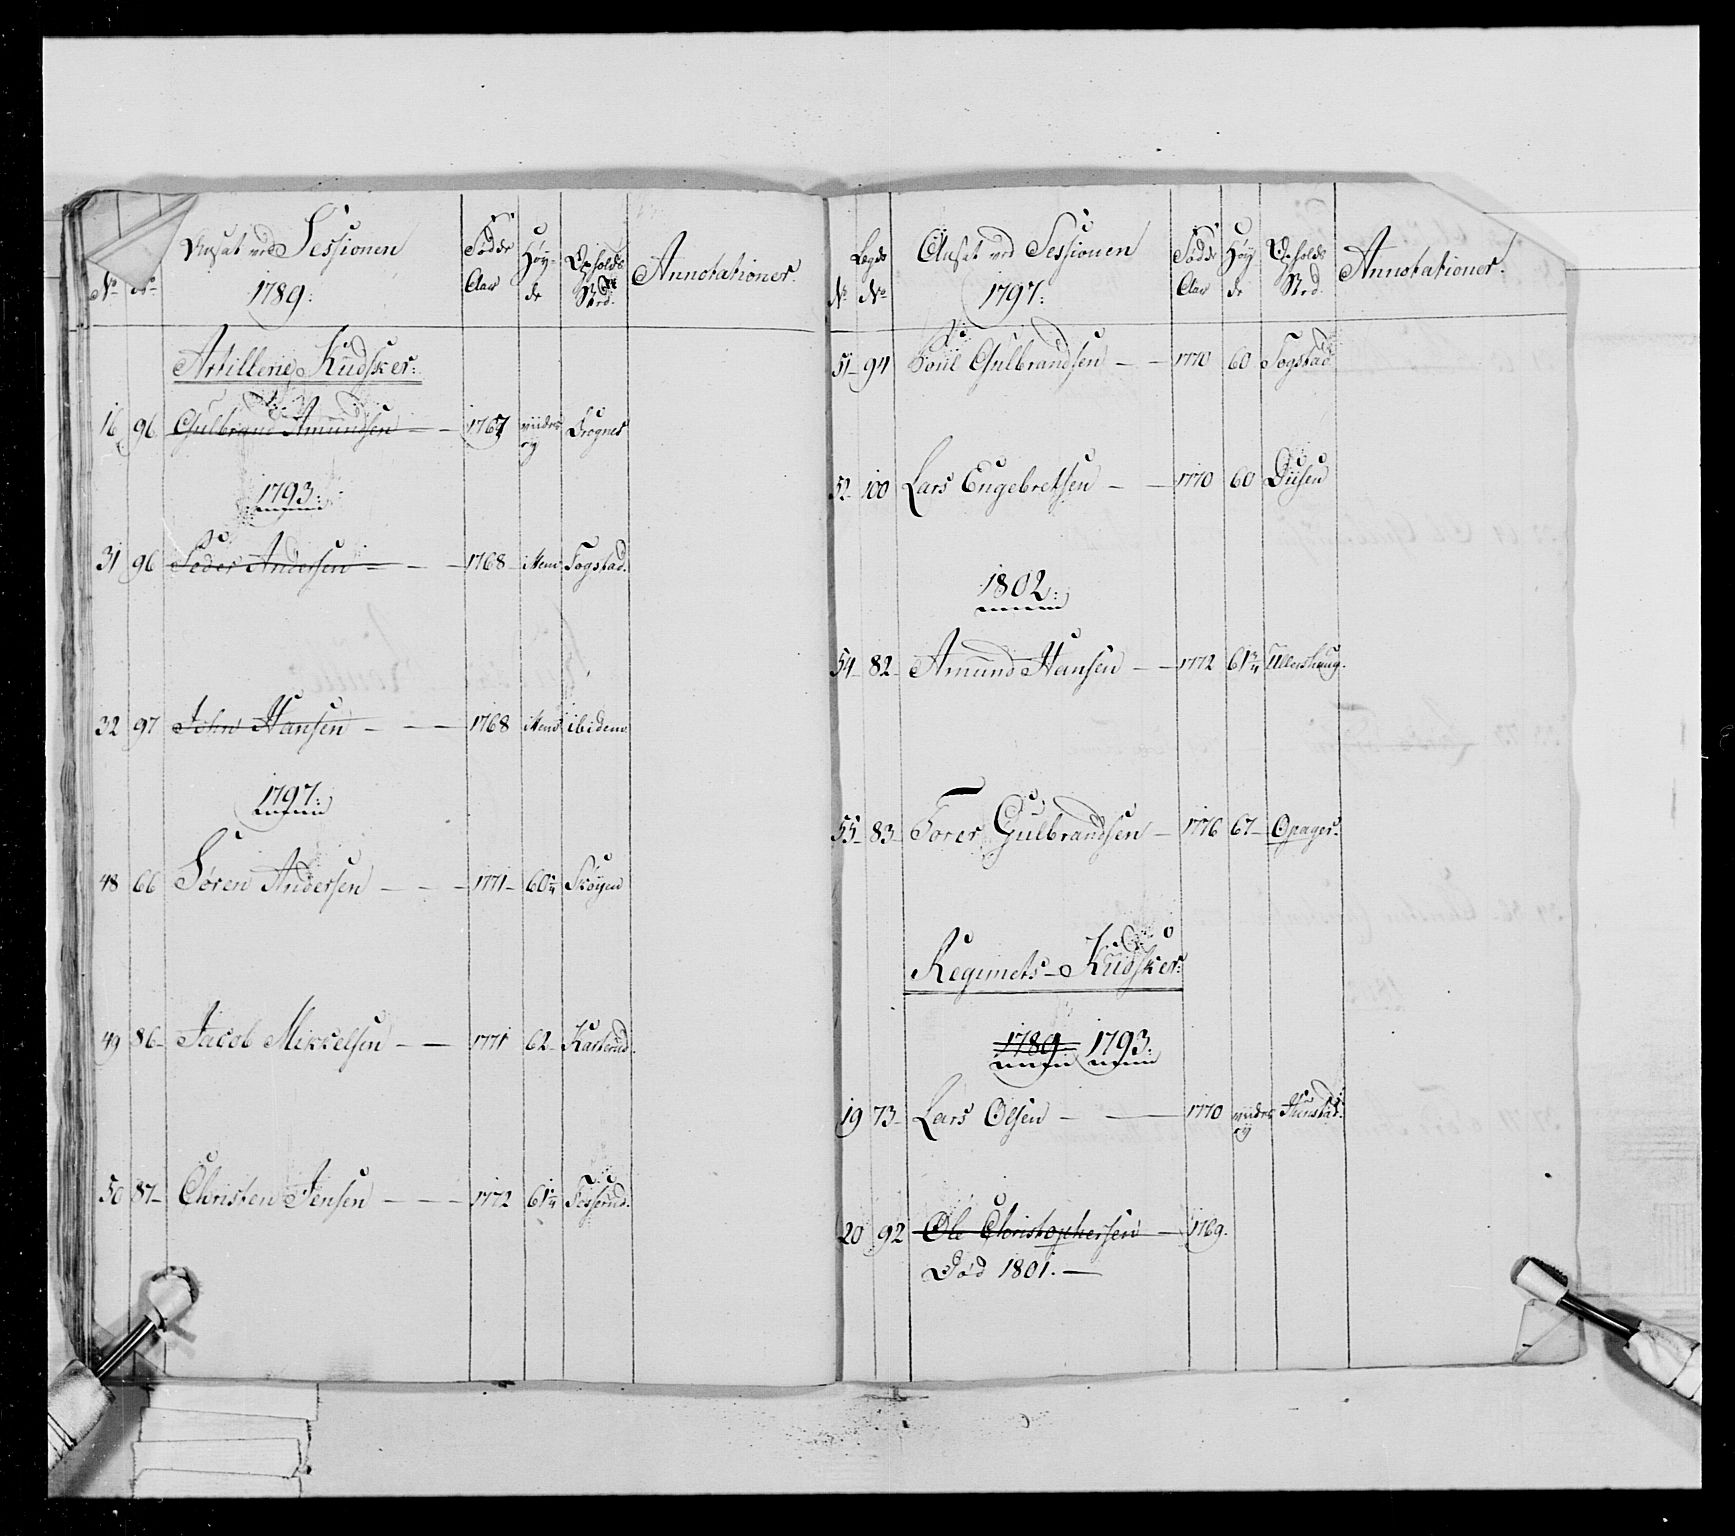 No No Ansat ved Sessionen 1789: Fødde Aar Høyde Opholds Sted Annotationer.
Artillerie Kudsker:
16 96 Gulbrand Amundsen 1767 Frogner
1793:
31 96 Peder Andersen 1768 Item Fogstad.
32 97 John Hansen 1768 Item ibidem
1797:
48 66 Søren Andersen 1771 60¼ Skøyen
49 86 Jacob Mikkelsen 1771 62 Karlsrud.
50 87 Christen Jensen 1772 61¼
No Legds No Ansat ved Sessionen 1797: Fødde Aar Høyde Opholds Sted. Annotationer.
51 94 Poul Gulbrandsen 1770 60 Fogstad
52 100 Lars Engebretsen 1770 60
1802:
54 82 Amund Hansen 1772 61¾ Ullershoug.
55 83 Torer Gulbrandsen 1776 67 Opager.
Regimets Kudsker:
1789. 1793:
19 73 Lars Olsen 1770
20 92 Ole Christophersen 1769.
Død 1801.